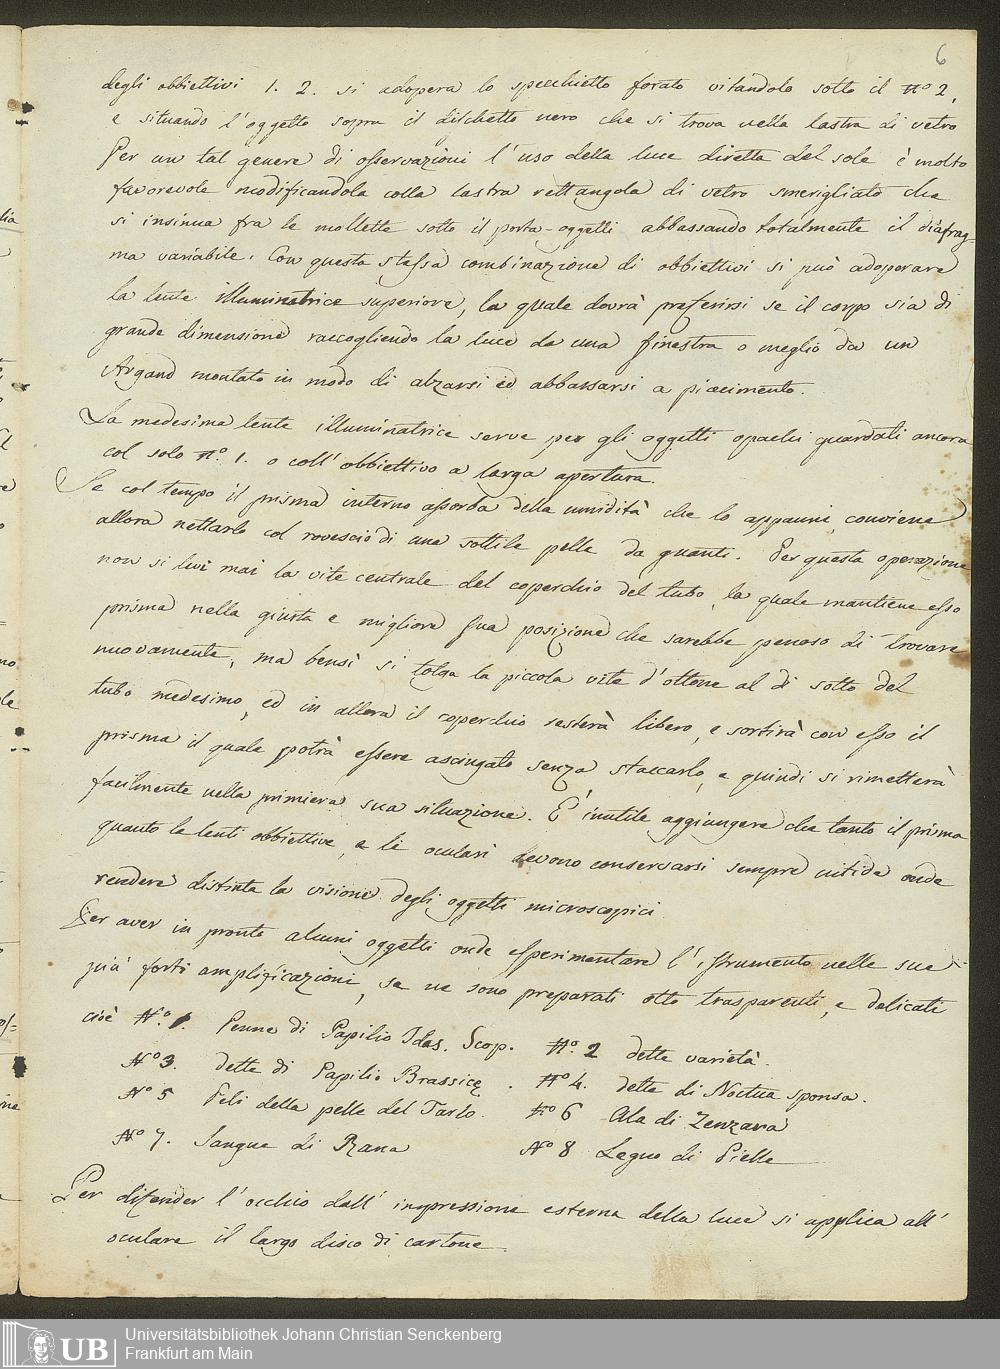 6
degli obbiettivi 1. 2. si adopera lo specchietto forato vitandolo sotto il N.º 2,
e situando l'oggetto sopra il dischetto nero che si trova nella lastra di vetro
Per un tal genere di osservazioni l'uso della luce diretta del sole è molto
favorevole modificandola colla lastra rettangola di vetro smerigliato che
si insinua fra le mollette sotto il porta-oggetti abbassando totalmente il diafrag-
ma variabile. Con questa stessa combinazione di obbiettivi si può adoperare
la lente illuminatrice superiore, la quale dovrà preferirsi se il corpo sia di
grande dimensione raccogliendo la luce da una finestra o meglio da un
Argand montato in modo di alzarsi ed abbassarsi a piacimento.
La medesima lente illuminatrice serve per gli oggetti opachi guardati ancora
col solo N.º 1. o coll'obbiettivo a larga apertura.
Se col tempo il prisma interno assorba della umidità che lo appanni, conviene
allora nettarlo col rovescio di una sottile pelle da guanti. Per questa operazione
non si levi mai la vite centrale del coperchio del tubo, la quale mantiene esso
prisma nella giusta e migliore sua posizione che sarebbe penoso di trovare
nuovamente, ma bensì si tolga la piccola vite d'ottone al di sotto del
tubo medesimo, ed in allora il coperchio resterà libero, e sortirà con esso il
prisma il quale potrà essere asciugato senza staccarlo, e quindi si rimetterà
facilmente nella primiera sua situazione. È inutile aggiungere che tanto il prisma
quanto le lenti obbiettive, e li oculari devono conservarsi sempre nitide onde
rendere distinta la visione degli oggetti microscopici
Per aver in pronte alcuni oggetti onde esperimentare l'istrumento nelle sue
più forti amplificazioni, se ne sono preparati otto trasparenti, e delicati
cioè N.º 1. Penne di Papilio Idas. Scop. N.º 2 dette varietà.
N.º 3. dette di Papilio Brassicę . N.º 4. dette di Noctua sponsa.
N.º 5 Peli della pelle del Tarlo. N.º 6 Ala di Zenzara
N.º 7. Sangue di Rana N.º 8 Legno di Pielle
Per difender l'occhio dall'impressione esterna della luce si applica all'
oculare il largo disco di cartone
UB
Universitätsbibliothek Johann Christian Senckenberg
Frankfurt am Main